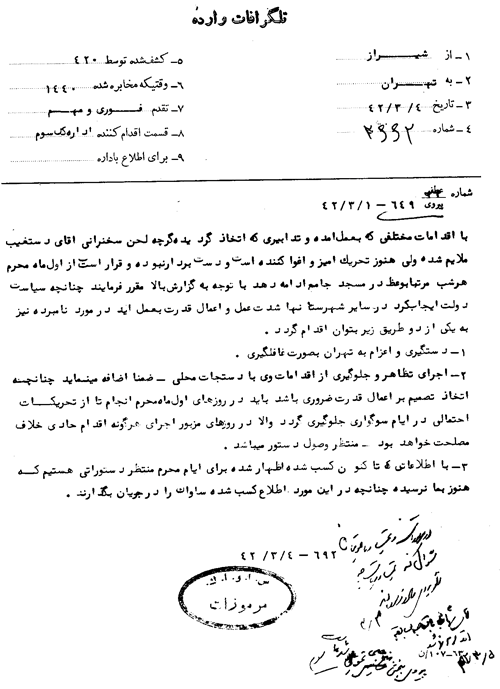 تلگرافات وارده
۱ـ از شیــراز
۲ـ به تهــران
۳ـ تاریخ ۴۲/۳/۴
۴ـ شماره
۵ـ کشف شده توسط ۴۲۰
۶ـ وقتیکه مخابره شده ۱۴۴۰
۷ـ تقدم فــوری و مهــم
۸ـ قسمت اقدام کننده اداره کل سوم
۹ـ برای اطلاع باداره
شماره
پیروی ۶۴۹ – ۴۲/۳/۱
با اقدامات مختلفی که بعمل امده و تدابیری که اتخاذ گردیده گرچه لحن سخنرانی اقای دستغیب
ملایم شده ولی هنوز تحریک امیز و اغوا کننده است و دست بردار نبوده و قرار است از اول ماه محرم
هرشب مرتبا بوعظ در مسجد جامع ادامه دهد با توجه به گزارش بالا مقرر فرمایند چنانچه سیاست
دولت ایجاب کرد در سایر شهرستانها شدت عمل و اعمال قدرت بعمل اید در مورد نامبرده نیز
به یکی از دو طریق زیر بتوان اقدام گردد .
۱ـ دستگیری و اعزام به تهران بصورت غافلگیری .
۲ـ اجرای تظاهر و جلوگیری از اقدامات وی با دستجات محلی ـ ضمنا اضافه مینماید چنانچه
اتخاذ تصمیم بر اعمال قدرت ضروری باشد باید در روزهای اول ماه محرم انجام تا از تحریکــات
احتمالی در ایام سوگواری جلوگیری گردد والا در روزهای مزبور اجرای هرگونه اقدام حادی خلاف
مصلحت خواهد بود ـ منتظر وصول دستور میباشد .
۳ـ با اطلاعاتی که تا کنون کسب شده اظهار شده برای ایام محرم منتظر دستوراتی هستیم که
هنوز بما نرسیده چنانچه در این مورد اطلاع کسب شده ساواک را در جریان بگذارند .
۶۹۲ – ۴۲/۳/۴
س . ا . و . ا . ک
مرموزات